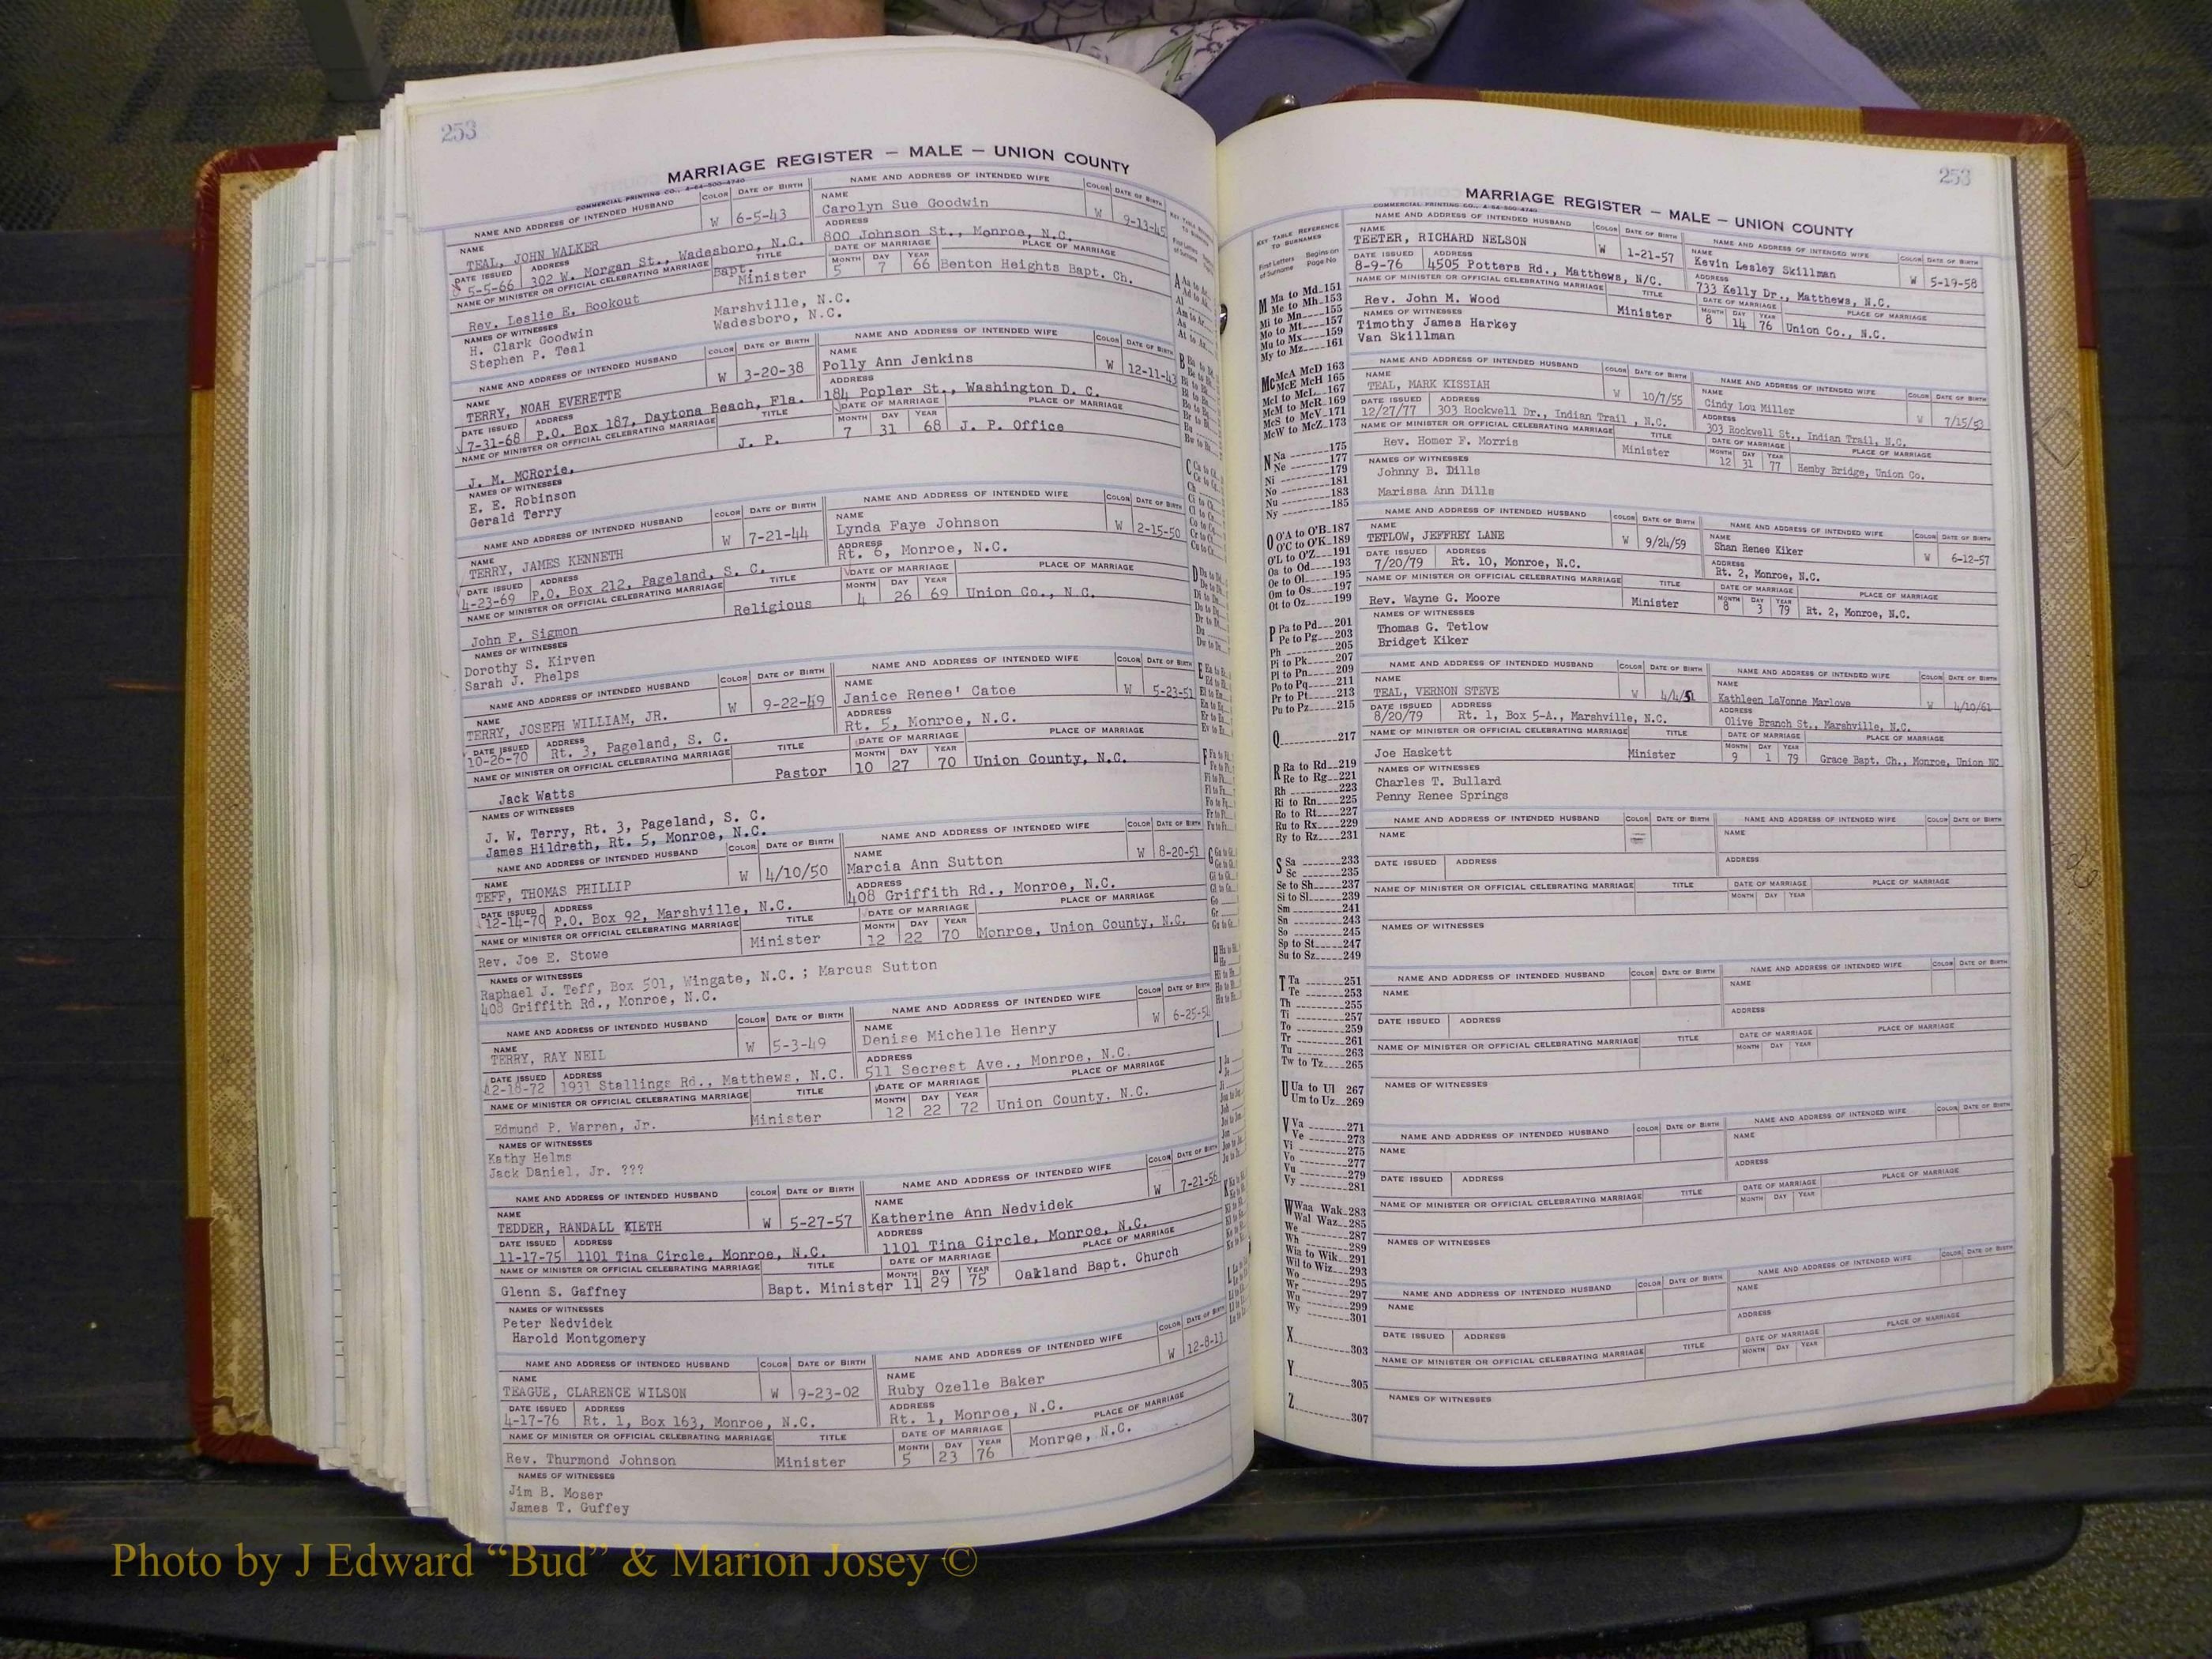 253
MARRIAGE REGISTER — MALE — UNION COUNTY
COMMERCIAL PRINTING CO., 4-64-500-4740
NAME AND ADDRESS OF INTENDED HUSBAND COLOR DATE OF BIRTH NAME AND ADDRESS OF INTENDED WIFE COLOR DATE OF BIRTH
NAME TEAL, JOHN WALKER W 6-5-43 NAME Carolyn Sue Goodwin W 9-13-45
DATE ISSUED 5-5-66 ADDRESS 302 W. Morgan St., Wadesboro, N.C. ADDRESS 800 Johnson St., Monroe, N.C.
NAME OF MINISTER OR OFFICIAL CELEBRATING MARRIAGE TITLE DATE OF MARRIAGE PLACE OF MARRIAGE
Rev. Leslie E. Bookout Bapt. Minister MONTH 5 DAY 7 YEAR 66 Benton Heights Bapt. Ch.
NAMES OF WITNESSES
H. Clark Goodwin Marshville, N.C.
Stephen P. Teal Wadesboro, N.C.
NAME AND ADDRESS OF INTENDED HUSBAND COLOR DATE OF BIRTH NAME AND ADDRESS OF INTENDED WIFE COLOR DATE OF BIRTH
NAME TERRY, NOAH EVERETTE W 3-20-38 NAME Polly Ann Jenkins W 12-11-43
DATE ISSUED 7-31-68 ADDRESS P.O. Box 187, Daytona Beach, Fla. ADDRESS 184 Popler St., Washington D. C.
NAME OF MINISTER OR OFFICIAL CELEBRATING MARRIAGE TITLE DATE OF MARRIAGE PLACE OF MARRIAGE
J. M. MCRorie, J. P. MONTH 7 DAY 31 YEAR 68 J. P. Office
NAMES OF WITNESSES
E. E. Robinson
Gerald Terry
NAME AND ADDRESS OF INTENDED HUSBAND COLOR DATE OF BIRTH NAME AND ADDRESS OF INTENDED WIFE COLOR DATE OF BIRTH
NAME TERRY, JAMES KENNETH W 7-21-44 NAME Lynda Faye Johnson W 2-15-50
DATE ISSUED 4-23-69 ADDRESS P.O. Box 212, Pageland, S. C. ADDRESS Rt. 6, Monroe, N.C.
NAME OF MINISTER OR OFFICIAL CELEBRATING MARRIAGE TITLE DATE OF MARRIAGE PLACE OF MARRIAGE
John F. Sigmon Religious MONTH 4 DAY 26 YEAR 69 Union Co., N.C.
NAMES OF WITNESSES
Dorothy S. Kirven
Sarah J. Phelps
NAME AND ADDRESS OF INTENDED HUSBAND COLOR DATE OF BIRTH NAME AND ADDRESS OF INTENDED WIFE COLOR DATE OF BIRTH
NAME TERRY, JOSEPH WILLIAM, JR. W 9-22-49 NAME Janice Renee' Catoe W 5-23-51
DATE ISSUED 10-26-70 ADDRESS Rt. 3, Pageland, S. C. ADDRESS Rt. 5, Monroe, N.C.
NAME OF MINISTER OR OFFICIAL CELEBRATING MARRIAGE TITLE DATE OF MARRIAGE PLACE OF MARRIAGE
Jack Watts Pastor MONTH 10 DAY 27 YEAR 70 Union County, N.C.
NAMES OF WITNESSES
J. W. Terry, Rt. 3, Pageland, S. C.
James Hildreth, Rt. 5, Monroe, N.C.
NAME AND ADDRESS OF INTENDED HUSBAND COLOR DATE OF BIRTH NAME AND ADDRESS OF INTENDED WIFE COLOR DATE OF BIRTH
NAME TEFF, THOMAS PHILLIP W 4/10/50 NAME Marcia Ann Sutton W 8-20-51
DATE ISSUED 12-14-70 ADDRESS P.O. Box 92, Marshville, N.C. ADDRESS 408 Griffith Rd., Monroe, N.C.
NAME OF MINISTER OR OFFICIAL CELEBRATING MARRIAGE TITLE DATE OF MARRIAGE PLACE OF MARRIAGE
Rev. Joe E. Stowe Minister MONTH 12 DAY 22 YEAR 70 Monroe, Union County, N.C.
NAMES OF WITNESSES
Raphael J. Teff, Box 501, Wingate, N.C. ; Marcus Sutton
408 Griffith Rd., Monroe, N.C.
NAME AND ADDRESS OF INTENDED HUSBAND COLOR DATE OF BIRTH NAME AND ADDRESS OF INTENDED WIFE COLOR DATE OF BIRTH
NAME TERRY, RAY NEIL W 5-3-49 NAME Denise Michelle Henry W 6-25-54
DATE ISSUED 12-18-72 ADDRESS 1931 Stallings Rd., Matthews, N.C. ADDRESS 511 Secrest Ave., Monroe, N.C.
NAME OF MINISTER OR OFFICIAL CELEBRATING MARRIAGE TITLE DATE OF MARRIAGE PLACE OF MARRIAGE
Edmund P. Warren, Jr. Minister MONTH 12 DAY 22 YEAR 72 Union County. N.C.
NAMES OF WITNESSES
Kathy Helms
Jack Daniel, Jr. ???
NAME AND ADDRESS OF INTENDED HUSBAND COLOR DATE OF BIRTH NAME AND ADDRESS OF INTENDED WIFE COLOR DATE OF BIRTH
NAME TEDDER, RANDALL KIETH W 5-27-57 NAME Katherine Ann Nedvidek W 7-21-56
DATE ISSUED 11-17-75 ADDRESS 1101 Tina Circle, Monroe, N.C. ADDRESS 1101 Tina Circle, Monroe, N.C.
NAME OF MINISTER OR OFFICIAL CELEBRATING MARRIAGE TITLE DATE OF MARRIAGE PLACE OF MARRIAGE
Glenn S. Gaffney Bapt. Minister MONTH 11 DAY 29 YEAR 75 Oakland Bapt. Church
NAMES OF WITNESSES
Peter Nedvidek
Harold Montgomery
NAME AND ADDRESS OF INTENDED HUSBAND COLOR DATE OF BIRTH NAME AND ADDRESS OF INTENDED WIFE COLOR DATE OF BIRTH
NAME TEAGUE, CLARENCE WILSON W 9-23-02 NAME Ruby Ozelle Baker W 12-8-13
DATE ISSUED 4-17-76 ADDRESS Rt. 1, Box 163, Monroe, N.C. ADDRESS Rt. 1, Monroe, N.C.
NAME OF MINISTER OR OFFICIAL CELEBRATING MARRIAGE TITLE DATE OF MARRIAGE PLACE OF MARRIAGE
Rev. Thurmond Johnson Minister MONTH 5 DAY 23 YEAR 76 Monroe, N.C.
NAMES OF WITNESSES
Jim B. Moser
James T. Guffey
253
MARRIAGE REGISTER — MALE — UNION COUNTY
COMMERCIAL PRINTING CO., 4-64-500-4740
KEY TABLE REFERENCE TO SURNAMES
First Letters of Surname Begins on Page No
M Ma to Md 151
Me to Mh 153
Mi to Mn 155
Mo to Mt 157
Mu to Mx 159
My to Mz 161
Mc McA McD 163
McE McH 165
McI to McL 167
McM to McR 169
McS to McV 171
McW to McZ 173
N Na 175
Ne 177
Ni 179
No 181
Nu 183
Ny 185
O O'A to O'B 187
O'C to O'K 189
O'L to O'Z 191
Oa to Od 193
Oe to Ol 195
Om to Os 197
Ot to Oz 199
P Pa to Pd 201
Pe to Pg 203
Ph 205
Pi to Pk 207
Pl to Pn 209
Po to Pq 211
Pr to Pt 213
Pu to Pz 215
Q 217
R Ra to Rd 219
Re to Rg 221
Rh 223
Ri to Rn 225
Ro to Rt 227
Ru to Rx 229
Ry to Rz 231
S Sa 233
Sc 235
Se to Sh 237
Si to Sl 239
Sm 241
Sn 243
So 245
Sp to St 247
Su to Sz 249
T Ta 251
Te 253
Th 255
Ti 257
To 259
Tr 261
Tu 263
Tw to Tz 265
U Ua to Ul 267
Um to Uz 269
V Va 271
Ve 273
Vi 275
Vo 277
Vu 279
Vy 281
W Waa Wak 283
Wal Waz 285
We 287
Wh 289
Wia to Wik 291
Wil to Wiz 293
Wo 295
Wr 297
Wu 299
Wy 301
X 303
Y 305
Z 307
NAME AND ADDRESS OF INTENDED HUSBAND COLOR DATE OF BIRTH NAME AND ADDRESS OF INTENDED WIFE COLOR DATE OF BIRTH
NAME TEETER, RICHARD NELSON W 1-21-57 NAME Kevin Lesley Skillman W 5-19-58
DATE ISSUED 8-9-76 ADDRESS 4505 Potters Rd., Matthews, N/C. ADDRESS 733 Kelly Dr., Matthews, N.C.
NAME OF MINISTER OR OFFICIAL CELEBRATING MARRIAGE TITLE DATE OF MARRIAGE PLACE OF MARRIAGE
Rev. John M. Wood Minister MONTH 8 DAY 14 YEAR 76 Union Co., N.C.
NAMES OF WITNESSES
Timothy James Harkey
Van Skillman
NAME AND ADDRESS OF INTENDED HUSBAND COLOR DATE OF BIRTH NAME AND ADDRESS OF INTENDED WIFE COLOR DATE OF BIRTH
NAME TEAL, MARK KISSIAH W 10/7/55 NAME Cindy Lou Miller W 7/15/53
DATE ISSUED 12/27/77 ADDRESS 303 Rockwell Dr., Indian Trail , N.C. ADDRESS 303 Rockwell St., Indian Trail, N.C.
NAME OF MINISTER OR OFFICIAL CELEBRATING MARRIAGE TITLE DATE OF MARRIAGE PLACE OF MARRIAGE
Rev. Homer F. Morris Minister MONTH 12 DAY 31 YEAR 77 Hemby Bridge, Union Co.
NAMES OF WITNESSES
Johnny B. Dills
Marissa Ann Dills
NAME AND ADDRESS OF INTENDED HUSBAND COLOR DATE OF BIRTH NAME AND ADDRESS OF INTENDED WIFE COLOR DATE OF BIRTH
NAME TETLOW, JEFFREY LANE W 9/24/59 NAME Shan Renee Kiker W 6-12-57
DATE ISSUED 7/20/79 ADDRESS Rt. 10, Monroe, N.C. ADDRESS Rt. 2, Monroe, N.C.
NAME OF MINISTER OR OFFICIAL CELEBRATING MARRIAGE TITLE DATE OF MARRIAGE PLACE OF MARRIAGE
Rev. Wayne G. Moore Minister MONTH 8 DAY 3 YEAR 79 Rt. 2, Monroe, N.C.
NAMES OF WITNESSES
Thomas G. Tetlow
Bridget Kiker
NAME AND ADDRESS OF INTENDED HUSBAND COLOR DATE OF BIRTH NAME AND ADDRESS OF INTENDED WIFE COLOR DATE OF BIRTH
NAME TEAL, VERNON STEVE W 4/4/51 NAME Kathleen LaVonne Marlowe W 4/10/61
DATE ISSUED 8/20/79 ADDRESS Rt. 1, Box 5-A., Marshville, N.C. ADDRESS Olive Branch St., Marshville, N.C.
NAME OF MINISTER OR OFFICIAL CELEBRATING MARRIAGE TITLE DATE OF MARRIAGE PLACE OF MARRIAGE
Joe Haskett Minister MONTH 9 DAY 1 YEAR 79 Grace Bapt. Ch., Monroe, Union NC
NAMES OF WITNESSES
Charles T. Bullard
Penny Renee Springs
NAME AND ADDRESS OF INTENDED HUSBAND COLOR DATE OF BIRTH NAME AND ADDRESS OF INTENDED WIFE COLOR DATE OF BIRTH
NAME NAME
DATE ISSUED ADDRESS ADDRESS
NAME OF MINISTER OR OFFICIAL CELEBRATING MARRIAGE TITLE DATE OF MARRIAGE PLACE OF MARRIAGE
MONTH DAY YEAR
NAMES OF WITNESSES
NAME AND ADDRESS OF INTENDED HUSBAND COLOR DATE OF BIRTH NAME AND ADDRESS OF INTENDED WIFE COLOR DATE OF BIRTH
NAME NAME
DATE ISSUED ADDRESS ADDRESS
NAME OF MINISTER OR OFFICIAL CELEBRATING MARRIAGE TITLE DATE OF MARRIAGE PLACE OF MARRIAGE
MONTH DAY YEAR
NAMES OF WITNESSES
NAME AND ADDRESS OF INTENDED HUSBAND COLOR DATE OF BIRTH NAME AND ADDRESS OF INTENDED WIFE COLOR DATE OF BIRTH
NAME NAME
DATE ISSUED ADDRESS ADDRESS
NAME OF MINISTER OR OFFICIAL CELEBRATING MARRIAGE TITLE DATE OF MARRIAGE PLACE OF MARRIAGE
MONTH DAY YEAR
NAMES OF WITNESSES
NAME AND ADDRESS OF INTENDED HUSBAND COLOR DATE OF BIRTH NAME AND ADDRESS OF INTENDED WIFE COLOR DATE OF BIRTH
NAME NAME
DATE ISSUED ADDRESS ADDRESS
NAME OF MINISTER OR OFFICIAL CELEBRATING MARRIAGE TITLE DATE OF MARRIAGE PLACE OF MARRIAGE
MONTH DAY YEAR
NAMES OF WITNESSES
Photo by J Edward “Bud” & Marion Josey ©